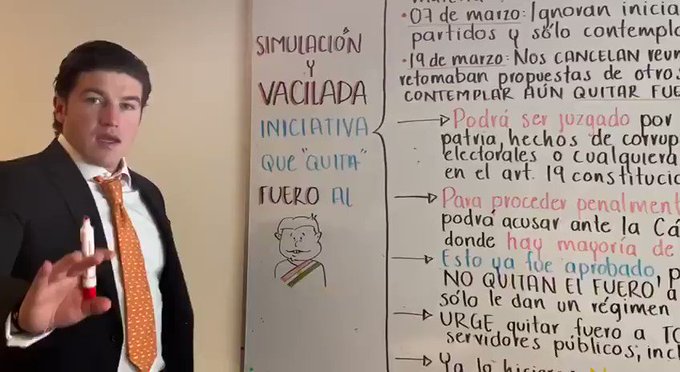 SIMULACIÓN
Y
VACILADA
INICIATIVA
QUE "QUITA"
FUERO AL
• 07 de marzo: Ignoran
partidos y sólo
• 19 de marzo: Nos CANCELAN
retomaban propuestas de
CONTEMPLAR AÚN QUITAR
Podrá ser juzgado por
patria, hechos de
electorales o cualquiera
en el art. 19
Para proceder
podrá acusar ante la
donde hay mayoría de
Esto ya fue aprobado,
NO QUITAN EL FUERO
sólo le dan un régimen
URGE quitar fuero a
servidores públicos,
Ya la